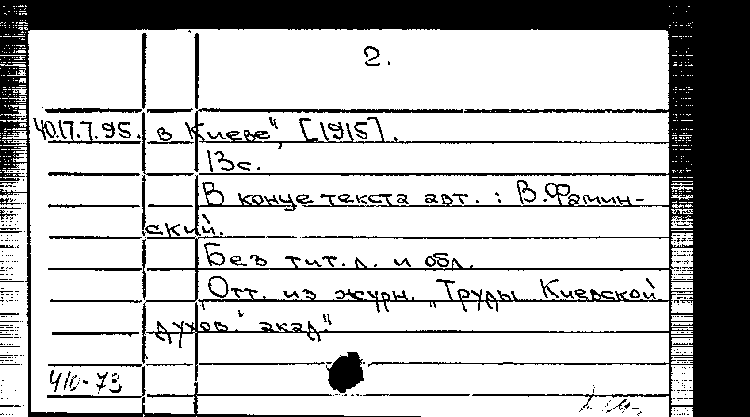 2.
40.17.7.95. в Киеве", [1915].
13с.
В конце текста авт. : В.Фамин-
ский.
Без тит.л. и обл.
Отт. из журн. „Труды Киевской
духов. акад."
410-73